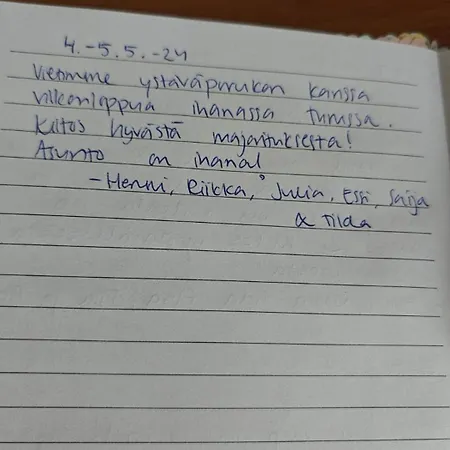 4.-5.5.-24
Vietimme ystäväporukan kanssa
viikonloppua ihanassa Turussa.
Kiitos hyvästä majoituksesta!
Asunto on ihana!
-Henni, Riikka, Julia, Essi, Saija
& Tilda